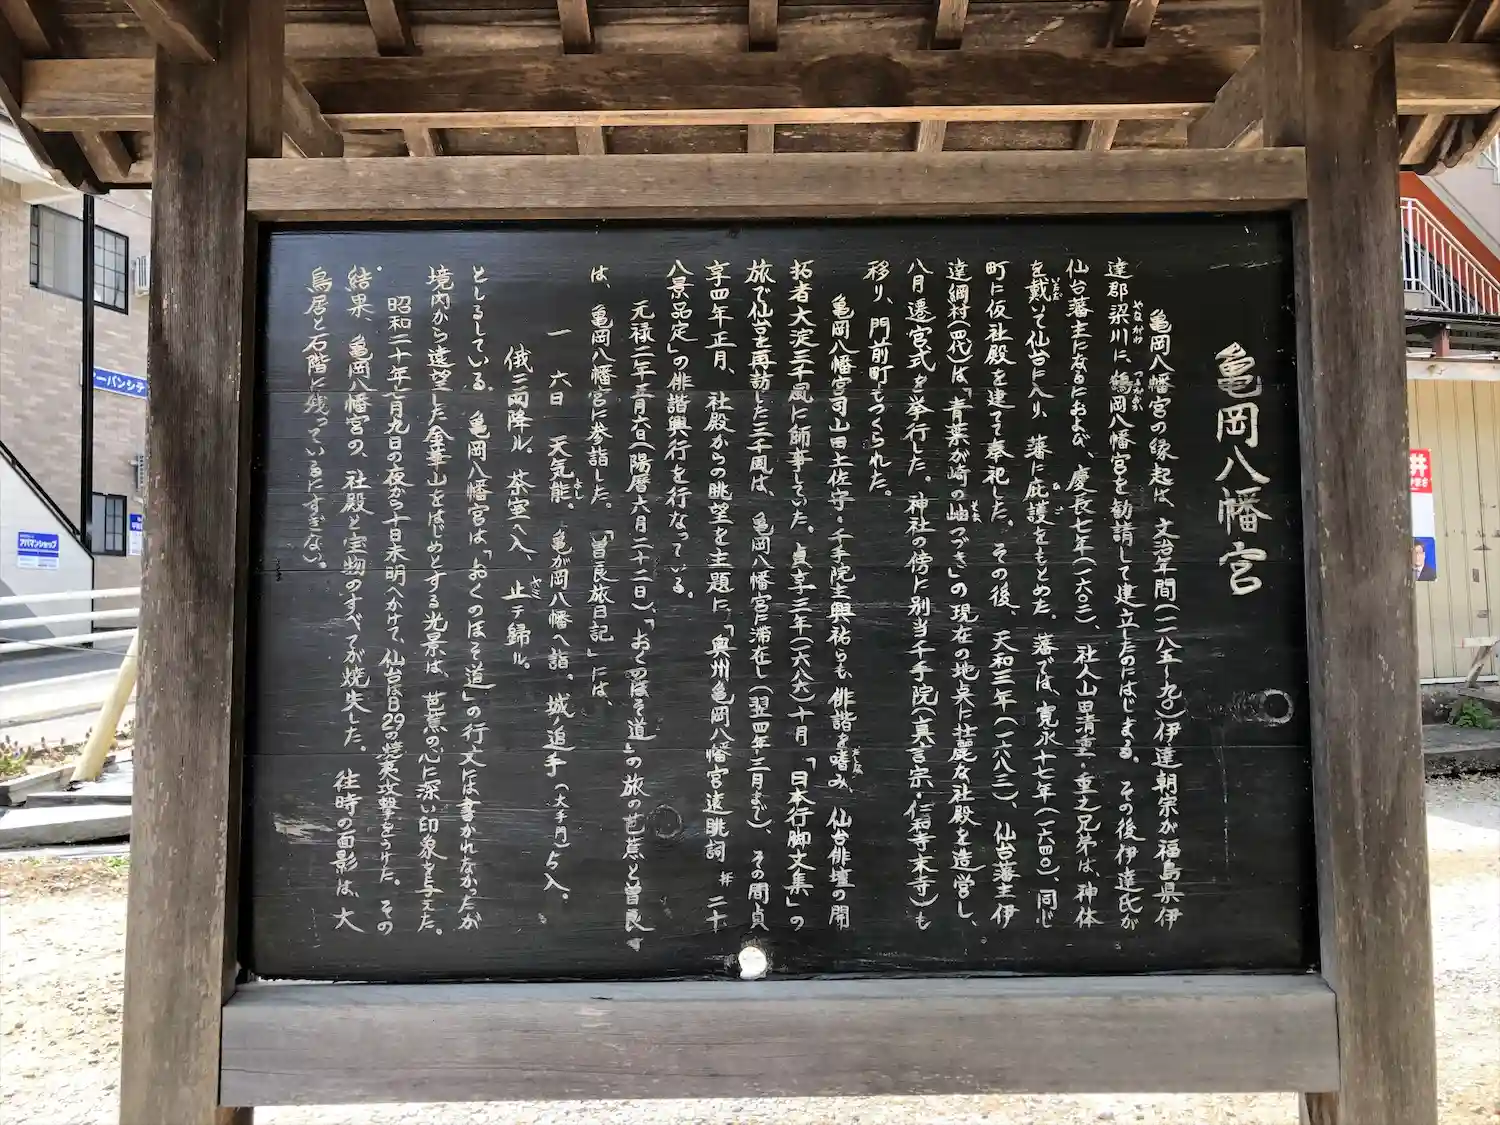 亀岡八幡宮
亀岡八幡宮の縁起は、文治年間(一一八五〜九〇)伊達朝宗が福島県伊
達郡梁川に、鶴岡八幡宮を勧請して建立したのにはじまる。その後伊達氏が
仙台藩主になるにおよび、慶長七年(一六〇二)、社人山田清重・重之兄弟は、神体
を戴いて仙台に入り、藩に庇護をもとめた。藩では、寛永十七年(一六四〇)、同じ
町に仮社殿を建て奉祀した。その後、天和三年(一六八三)、仙台藩主伊
達綱村(四代)は、「青葉が崎の岫つづき」の現在の地点に壮麗な社殿を造営し、
八月遷宮式を挙行した。神社の傍に別当千手院(真言宗・仁和寺末寺)も
移り、門前町もつくられた。
亀岡八幡宮司山田土佐守・千手院主興祐らも俳諧を嗜み、仙台俳壇の開
拓者大淀三千風に師事していた。貞享三年(一六八六)十月「日本行脚文集」の
旅で仙台を再訪した三千風は、亀岡八幡宮に滞在し(翌四年三月まで)、その間貞
享四年正月、社殿からの眺望を主題に、「奥州亀岡八幡宮遠眺詞 并 二十
八景品定」の俳諧興行を行なっている。
元禄二年五月六日(陽暦六月二十二日)、「おくのほそ道」の旅の芭蕉と曽良
は、亀岡八幡宮に参詣した。「曽良旅日記」には、
一 六日 天気能。亀が岡八幡へ詣。城ノ追手(大手門)ゟ入。
俄ニ雨降ル。茶室へ入、止テ帰ル。
としるしている。亀岡八幡宮は「おくのほそ道」の行文には書かれなかったが
境内から遠望した金華山をはじめとする光景は、芭蕉の心に深い印象を与えた。
昭和二十年七月九日の夜から十日未明へかけて、仙台はB29の焼夷攻撃をうけた。その
結果、亀岡八幡宮の、社殿と宝物のすべてが焼失した。往時の面影は、大
鳥居と石階に残っているにすぎない。
アパマンショップ